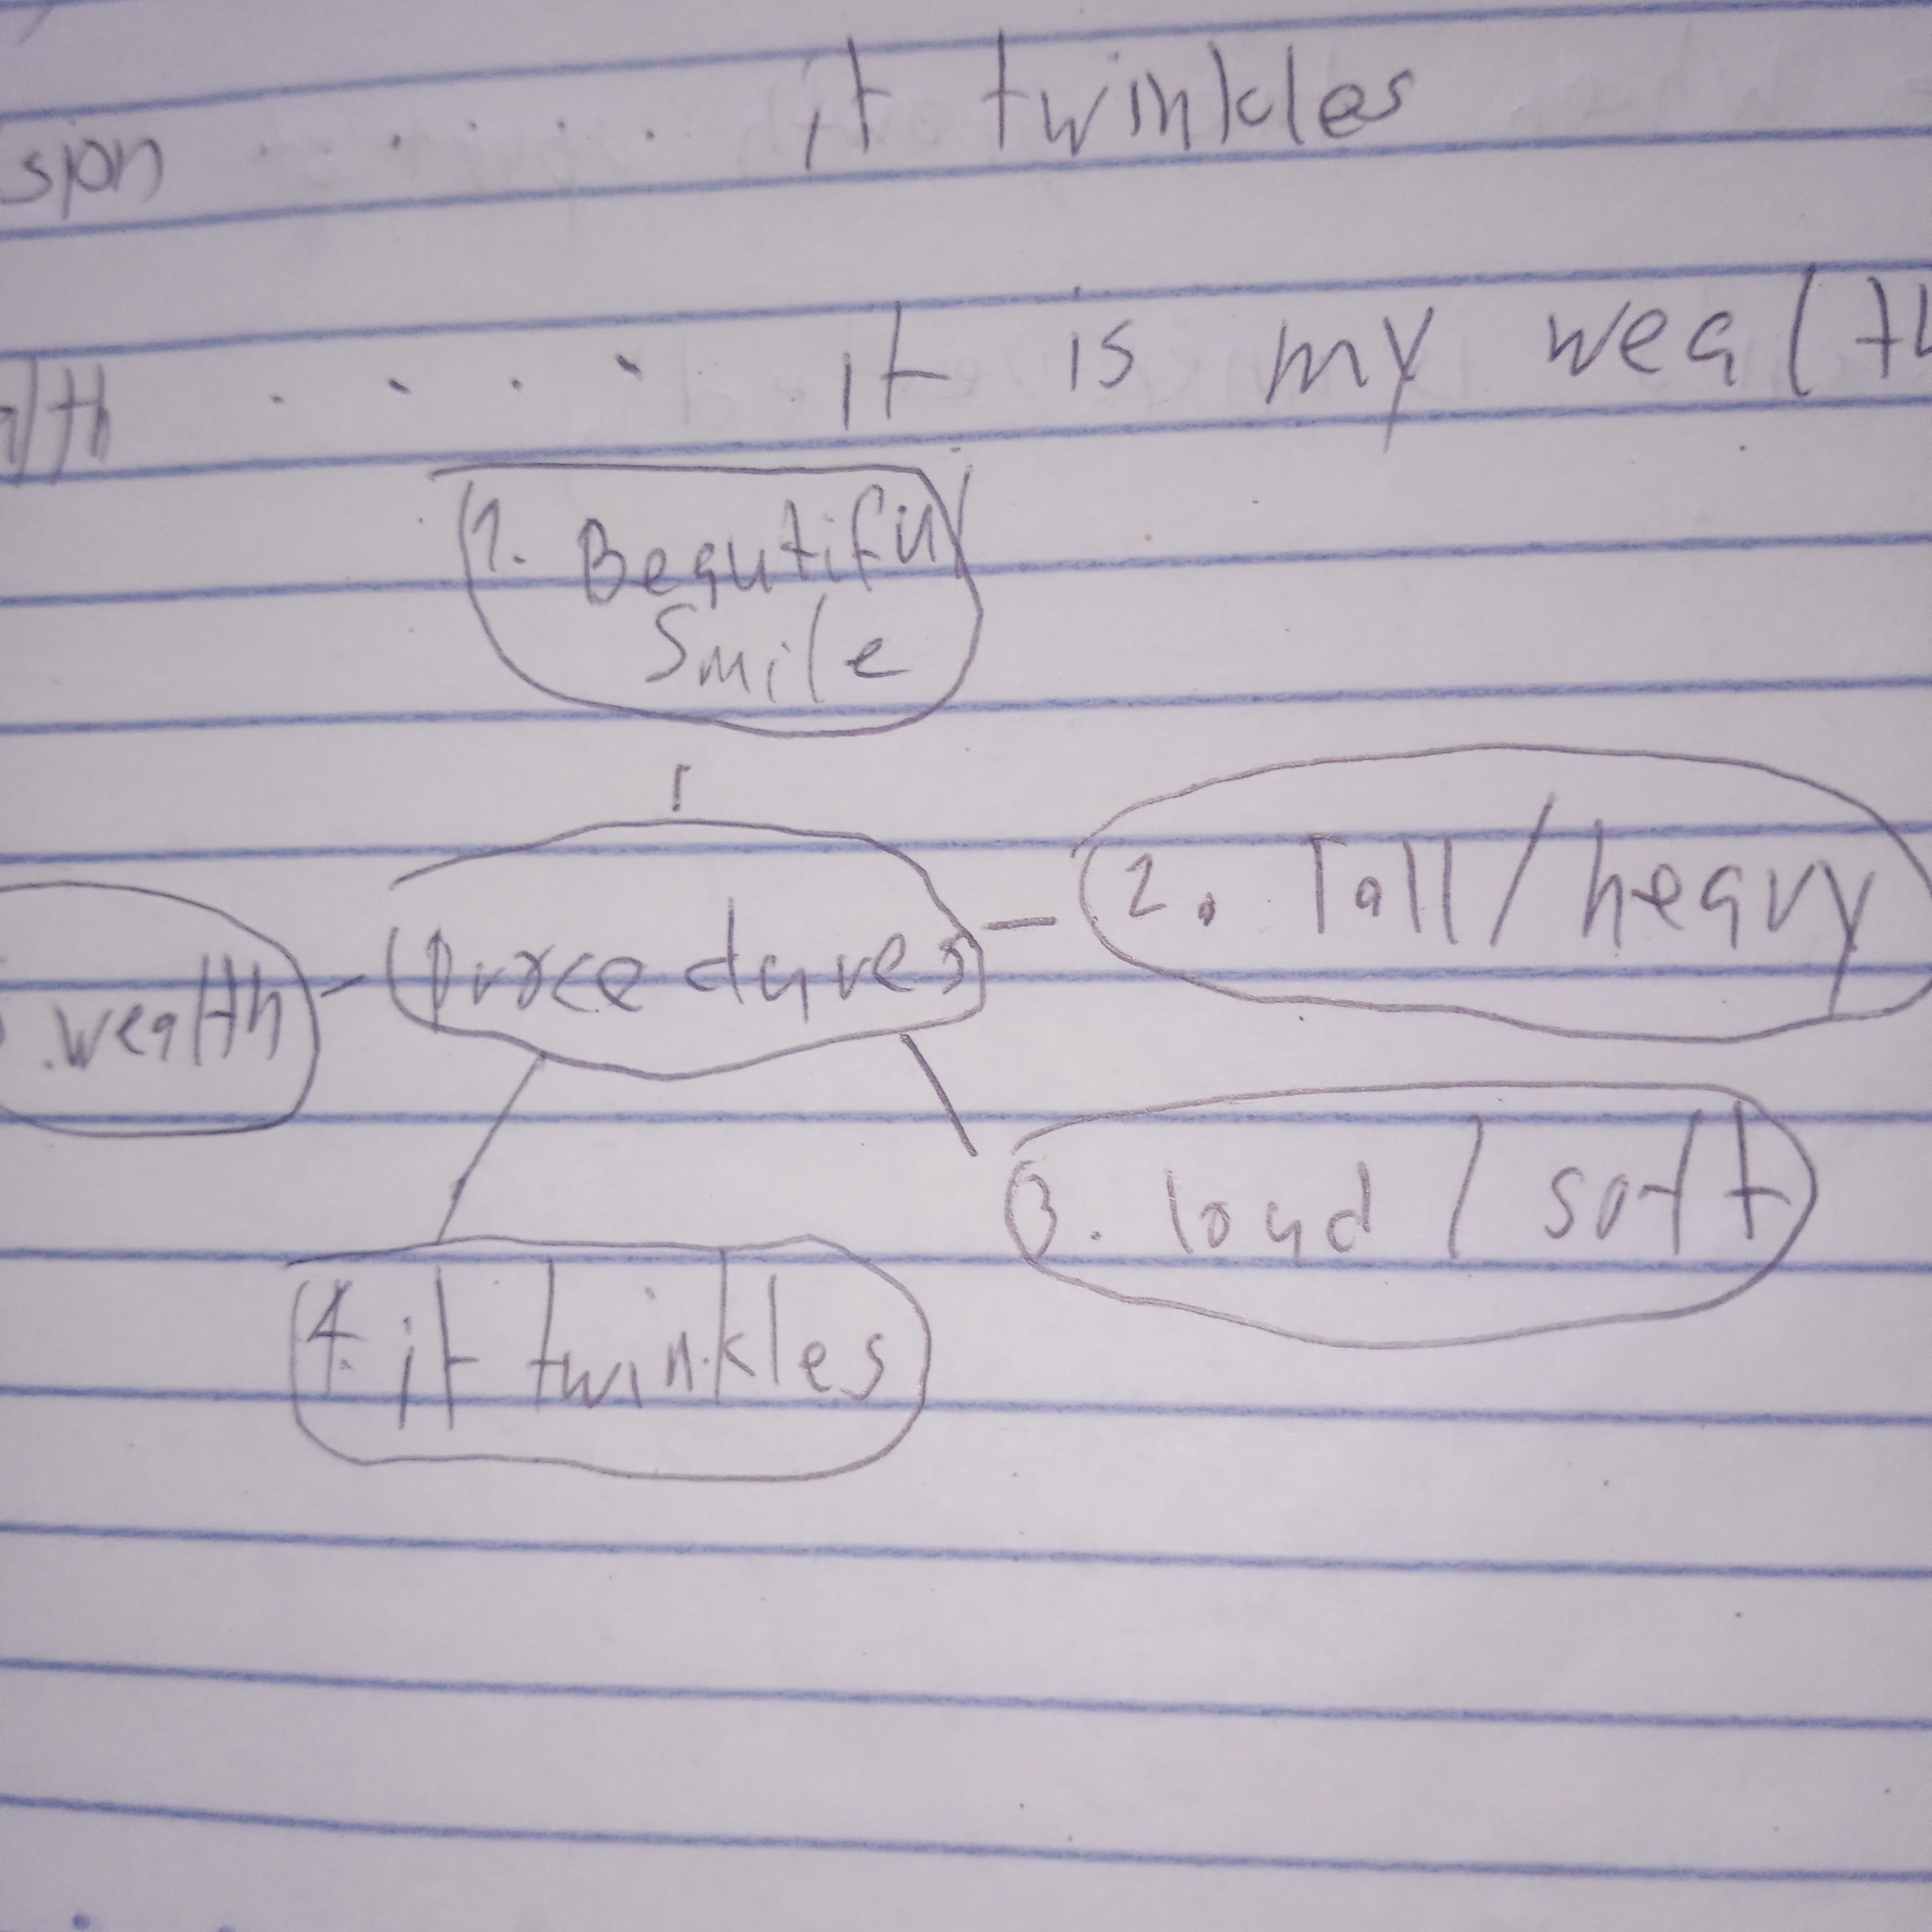 sion . . . . it twinkles
alth . . . . it is my wealth
1. Beautiful
Smile
2. Tall / heavy
. wealth
procedures
3. loud / soft
4. it twinkles